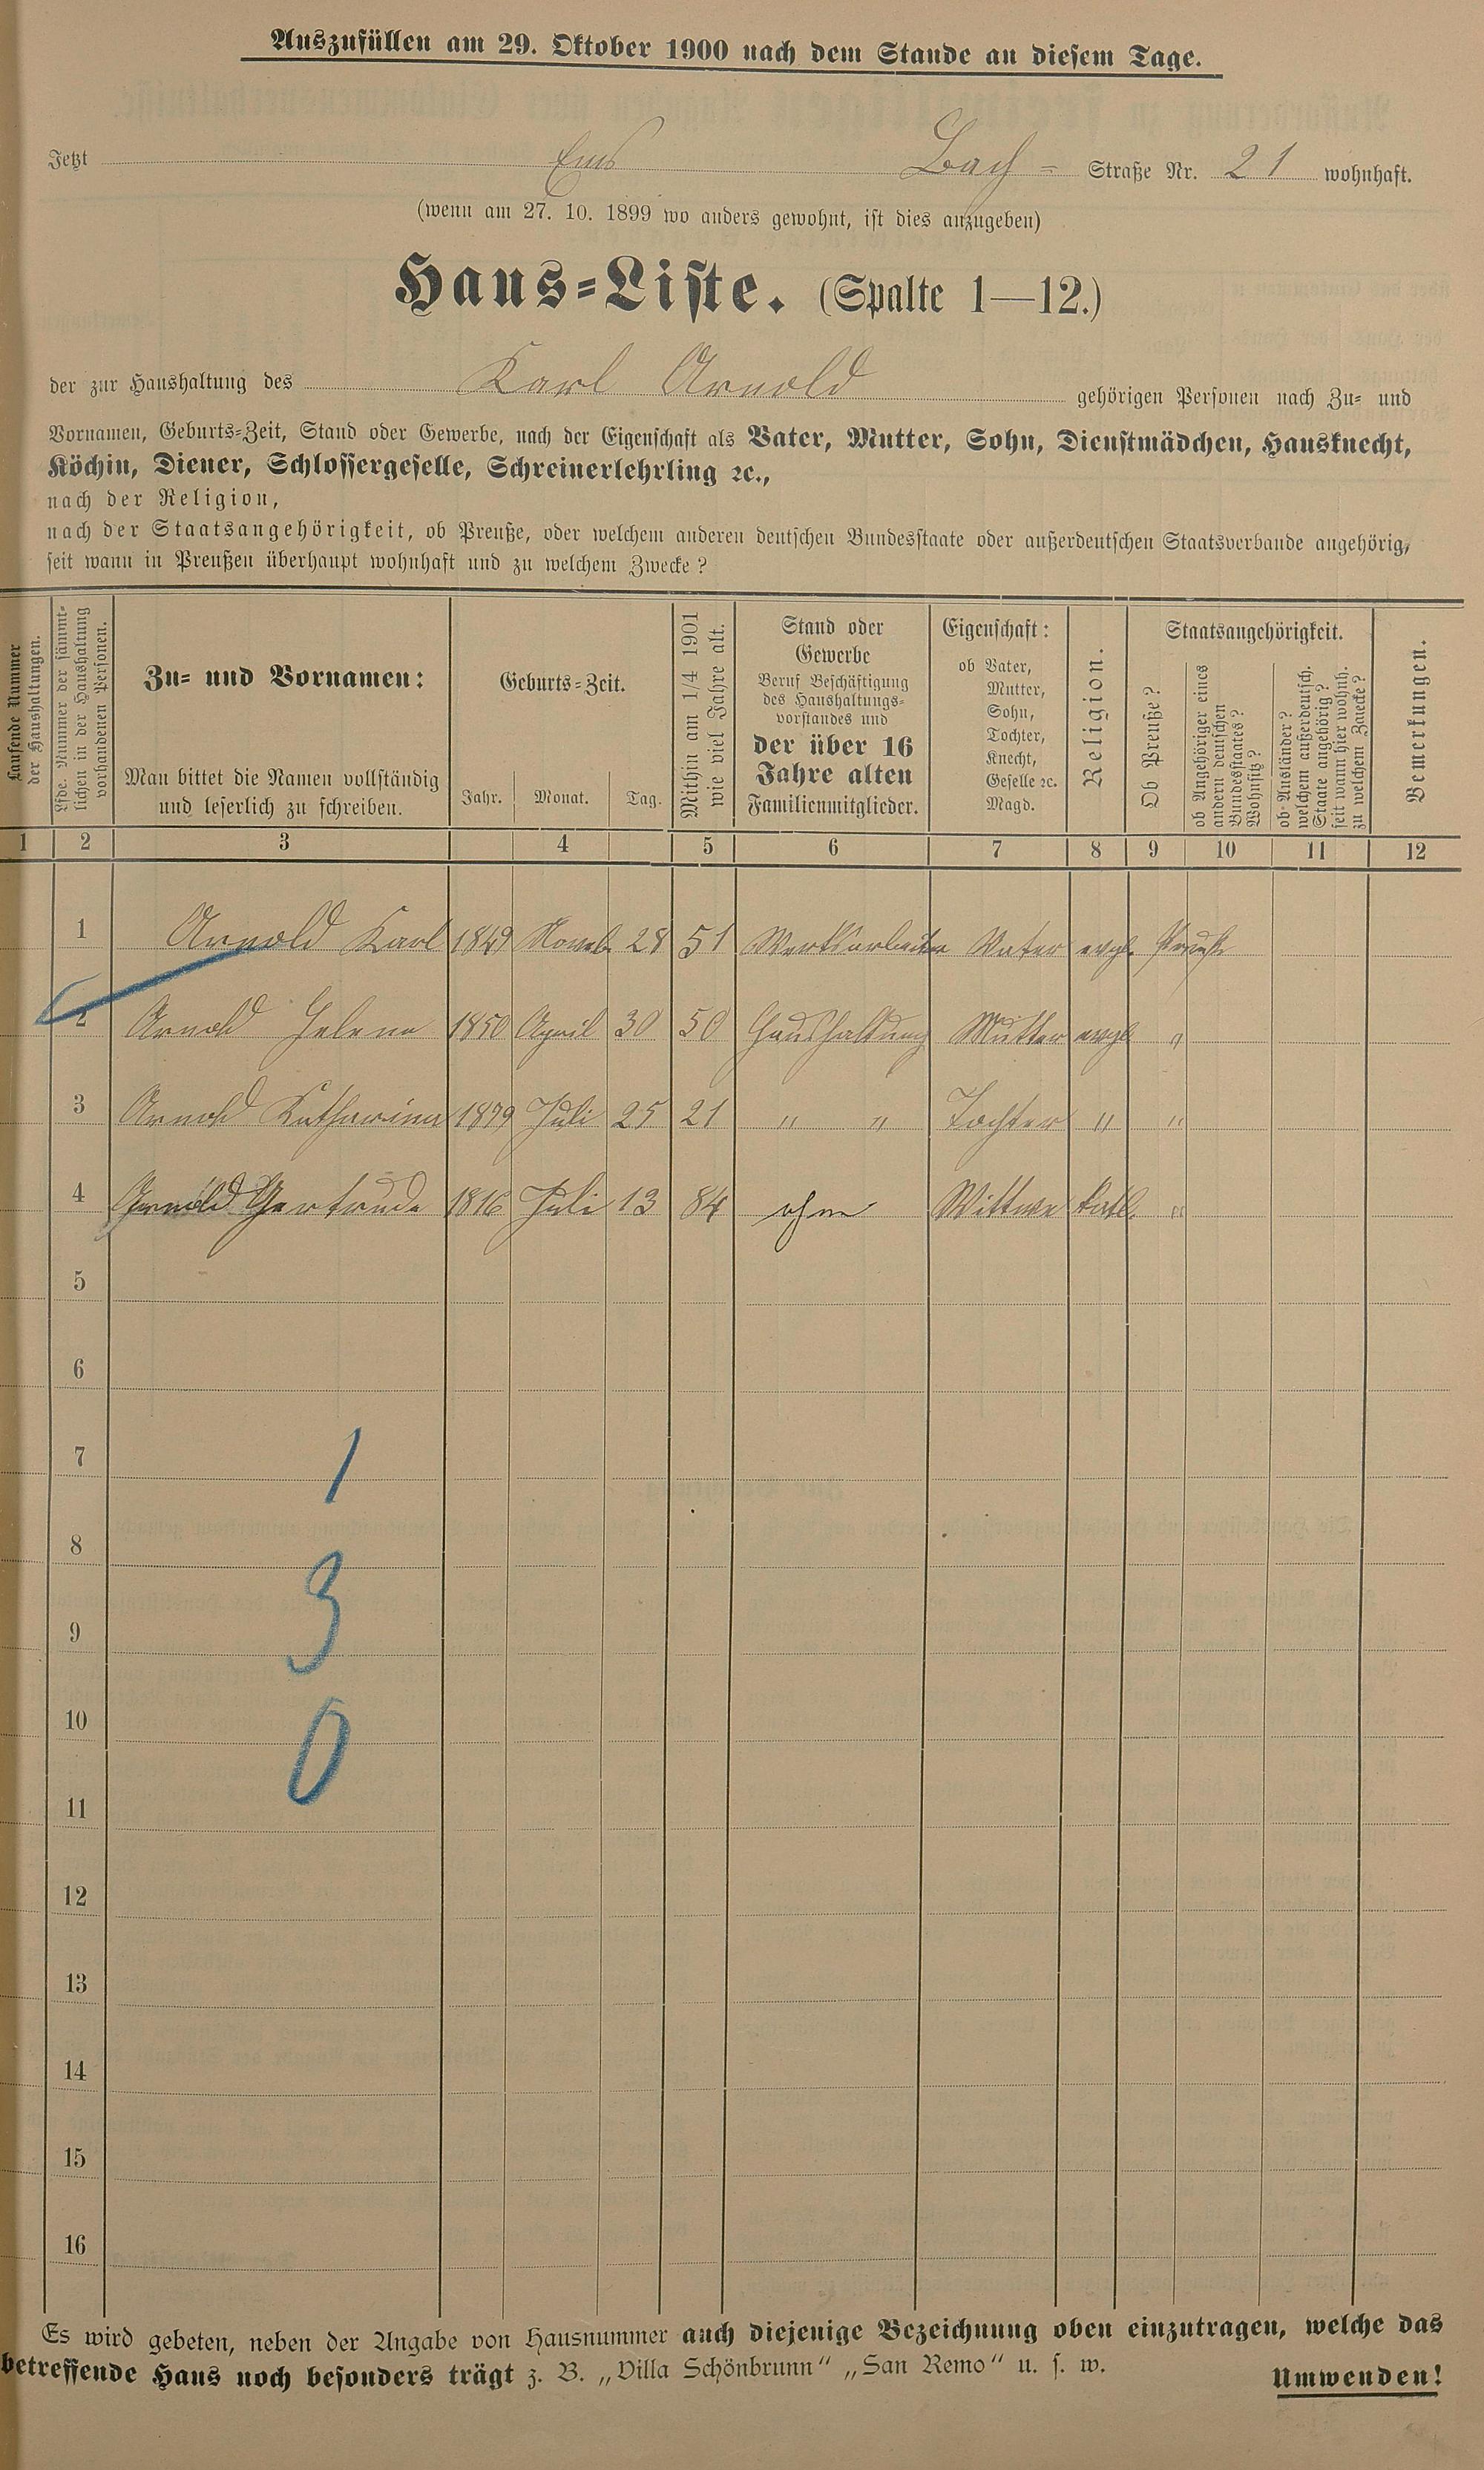 Auszufüllen am 29. Oktober 1900 nach dem Stande an diesem Tage.
Jetzt Ems Bach= Straße Nr. 21 wohnhaft.
(wenn am 27. 10. 1899 wo anders gewohnt, ist dies anzugeben)
Haus=Liste. (Spalte 1—12.)
der zur Haushaltung des Karl Arnold gehörigen Personen nach Zu= und
Vornamen, Geburts=Zeit, Stand oder Gewerbe, nach der Eigenschaft als Vater, Mutter, Sohn, Dienstmädchen, Hausknecht,
Köchin, Diener, Schlossergeselle, Schreinerlehrling ꝛc.,
nach der Religion,
nach der Staatsangehörigkeit, ob Preuße, oder welchem anderen deutschen Bundesstaate oder außerdeutschen Staatsverbande angehörig,
seit wann in Preußen überhaupt wohnhaft und zu welchem Zwecke?
Laufende Nummer
der Haushaltungen.
Lfde. Nummer der sämmt=
lichen in der Haushaltung
vorhandenen Personen.
Zu= und Vornamen:
Man bittet die Namen vollständig
und leserlich zu schreiben.
Geburts=Zeit.
Jahr. Monat. Tag.
Mithin am 1/4 1901
wie viel Jahre alt.
Stand oder
Gewerbe
Beruf Beschäftigung
des Haushaltungs=
vorstandes und
der über 16
Jahre alten
Familienmitglieder.
Eigenschaft:
ob Vater,
Mutter,
Sohn,
Tochter,
Knecht,
Geselle ꝛc.
Magd.
Religion.
Staatsangehörigkeit.
Ob Preuße?
ob Angehöriger eines
andern deutschen
Bundesstaates?
Wohnsitz?
ob Ausländer?
welchem außerdeutsch.
Staate angehörig?
seit wann hier wohnh.
zu welchem Zwecke?
Bemerkungen.
1 2 3 4 5 6 7 8 9 10 11 12
1 Arnold Karl 1849 Noveb. 28 51 Werksarbeiter Vater evgl. Preuße
2 Arnold Helena 1850 April 30 50 Haushaltung Mutter evgl. "
3 Arnold Katharina 1879 Juli 25 21 " " Tochter " "
4 Arnold Gertrude 1816 Juli 13 84 ohne Wittwe katl. "
5
6
7
1
8
3
9
10
0
11
12
13
14
15
16
Es wird gebeten, neben der Angabe von Hausnummer auch diejenige Bezeichnung oben einzutragen, welche das
betreffende Haus noch besonders trägt z. B. „Villa Schönbrunn“ „San Remo“ u. s. w.
Umwenden!